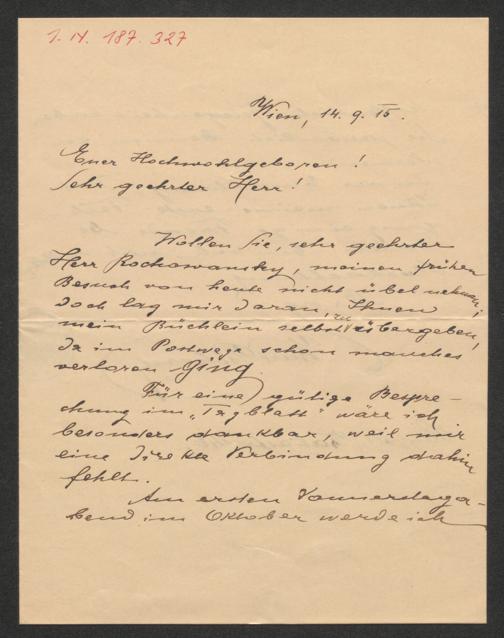 J. N. 187.327
Wien, 14. 9. 15.
Euer Hochwohlgeboren!
Sehr geehrter Herr!
Wollen Sie, sehr geehrter
Herr Rochowansky, meinen frühen
Besuch von heute nicht übel nehmen;
doch lag mir daran, Ihnen
mein Büchlein selbst zu übergeben,
da im Postwege schon manches
verloren ging.
Für eine gütige Bespre-
chung im "Tagblatt" wäre ich
besonders dankbar, weil mir
eine direkte Verbindung dahin
fehlt.
Am ersten Donnerstaga-
bend im Oktober werde ich